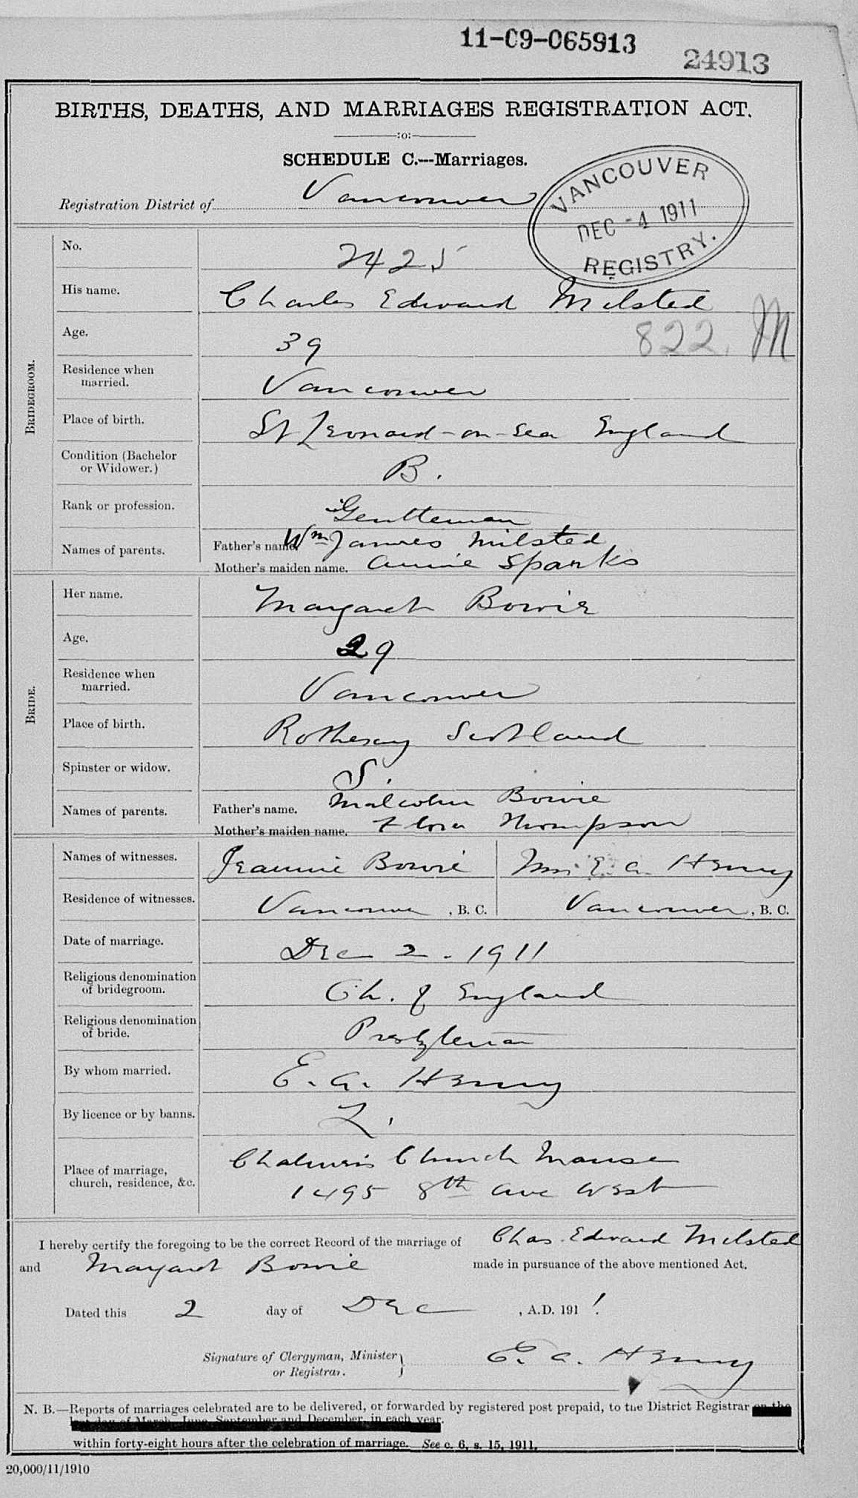 11-09-065913
24913
BIRTHS, DEATHS, AND MARRIAGES REGISTRATION ACT.
:o:
SCHEDULE C.—Marriages.
Registration District of Vancouver
VANCOUVER
DEC -4 1911
REGISTRY.
No. 2425
BRIDEGROOM.
His name. Charles Edward Milsted
Age. 39 822. M
Residence when married. Vancouver
Place of birth. St Leonard-on-Sea England
Condition (Bachelor or Widower.) B.
Rank or profession. Gentleman
Names of parents. Father's name. Wm James Milsted
Mother's maiden name. Annie Sparks
BRIDE.
Her name. Margaret Bowie
Age. 29
Residence when married. Vancouver
Place of birth. Rothesay Scotland
Spinster or widow. S.
Names of parents. Father's name. Malcolm Bowie
Mother's maiden name. Flora Thompson
Names of witnesses. Jeannie Bowie Mrs E. A. Henry
Residence of witnesses. Vancouver, B. C. Vancouver, B. C.
Date of marriage. Dec 2. 1911
Religious denomination of bridegroom. Ch. of England
Religious denomination of bride. Presbyterian
By whom married. E. A. Henry
By licence or by banns. L.
Place of marriage, church, residence, &c. Chalmers Church Manse
1495 8th Ave West
I hereby certify the foregoing to be the correct Record of the marriage of Chas. Edward Milsted
and Margaret Bowie made in pursuance of the above mentioned Act.
Dated this 2 day of Dec, A.D. 1911.
Signature of Clergyman, Minister or Registrar. E. A. Henry
N. B.—Reports of marriages celebrated are to be delivered, or forwarded by registered post prepaid, to the District Registrar on the
last day of March, June, September and December, in each year.
within forty-eight hours after the celebration of marriage. See c. 6, s. 15, 1911.
20,000/11/1910